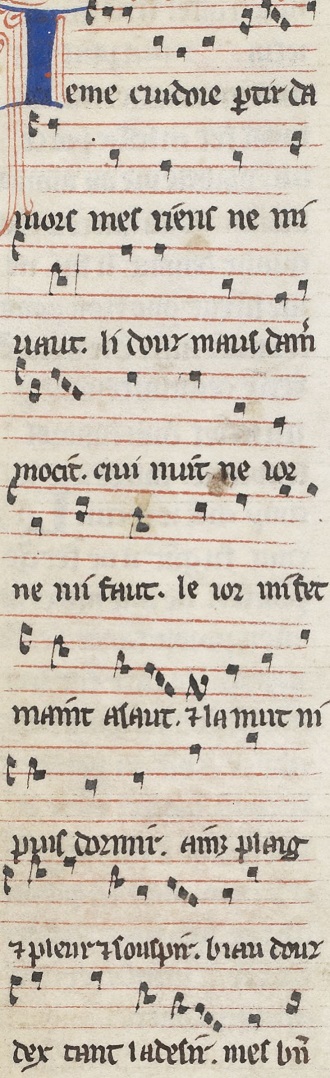 Ieme cuidoie ꝑtir da
mors mes riens ne mi
uaut. li douz maus dam̃
mocit. qui nuit ne ior
ne mi faut. le ior mi fet
maint asaut. ⁊ la nuit ni
puis dormir. ainz plaig
⁊ pleur ⁊ souspir. biau douz
dex tant la desir. mes bñ